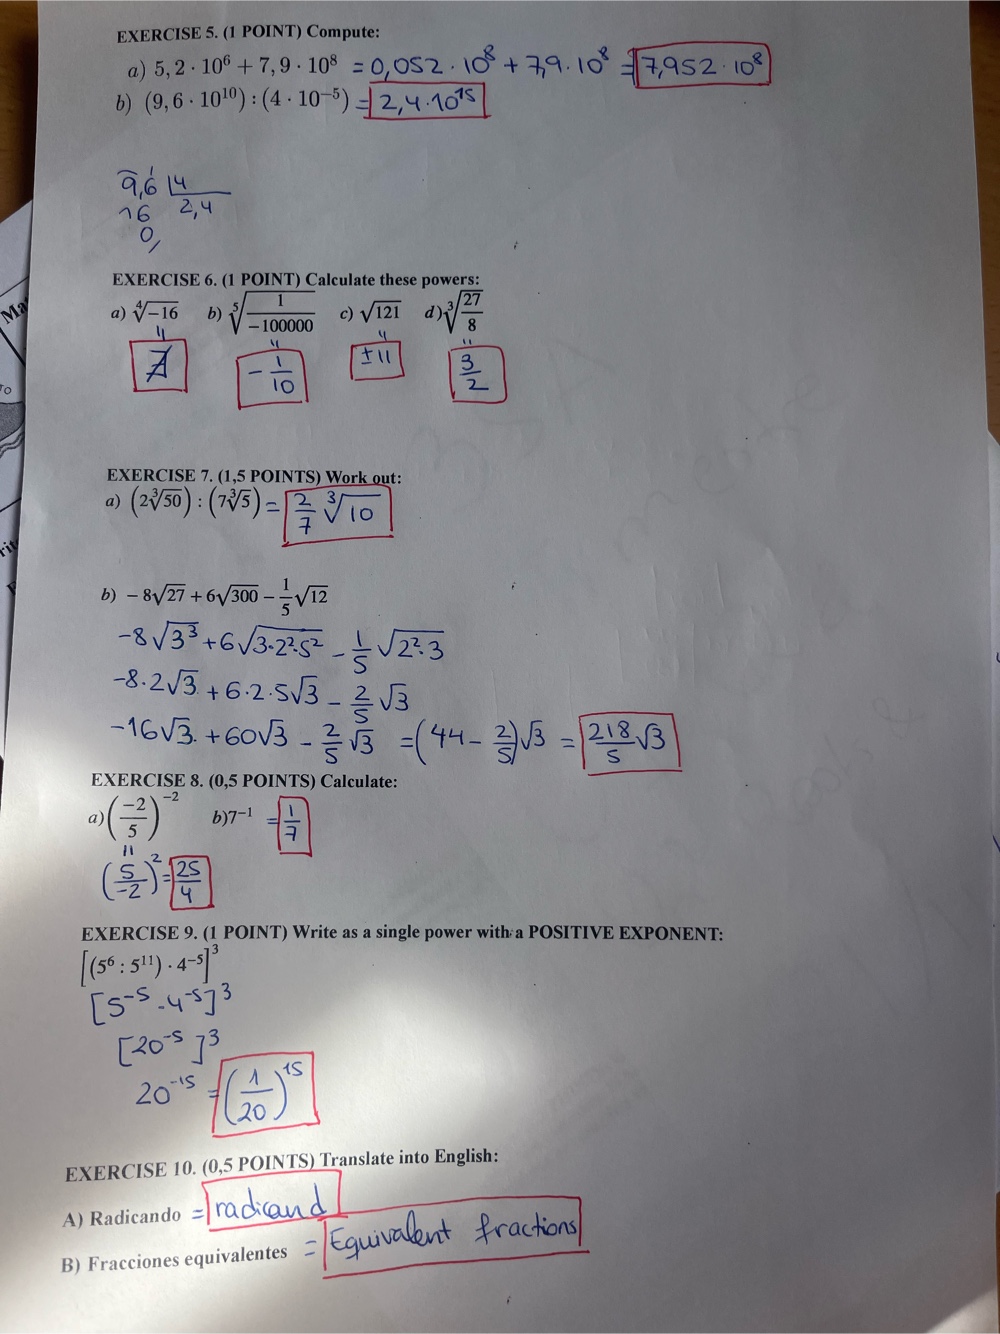 EXERCISE 5. (1 POINT) Compute:
a) 5,2 · 10⁶ + 7,9 · 10⁸ = 0,052 · 10⁸ + 7,9 · 10⁸ = 7,952 · 10⁸
b) (9,6 · 10¹⁰) : (4 · 10⁻⁵) = 2,4 · 10¹⁵
9,6 | 4
16 2,4
0
EXERCISE 6. (1 POINT) Calculate these powers:
a) ⁴√-16 b) ⁵√(1/-100000) c) √121 d) ³√(27/8)
= ∄ = -1/10 = ±11 = 3/2
EXERCISE 7. (1,5 POINTS) Work out:
a) (2³√50) : (7³√5) = 2/7 ³√10
b) - 8√27 + 6√300 - 1/5 √12
-8√3³ + 6√3·2²·5² - 1/5 √2²·3
-8·2√3 + 6·2·5√3 - 2/5 √3
-16√3 + 60√3 - 2/5 √3 = (44 - 2/5)√3 = 218/5 √3
EXERCISE 8. (0,5 POINTS) Calculate:
a) (-2/5)⁻² b) 7⁻¹ = 1/7
= (5/-2)² = 25/4
EXERCISE 9. (1 POINT) Write as a single power with a POSITIVE EXPONENT:
[(5⁶ : 5¹¹) · 4⁻⁵]³
[5⁻⁵ · 4⁻⁵]³
[20⁻⁵]³
20⁻¹⁵ = (1/20)¹⁵
EXERCISE 10. (0,5 POINTS) Translate into English:
A) Radicando = radicand
B) Fracciones equivalentes = Equivalent fractions